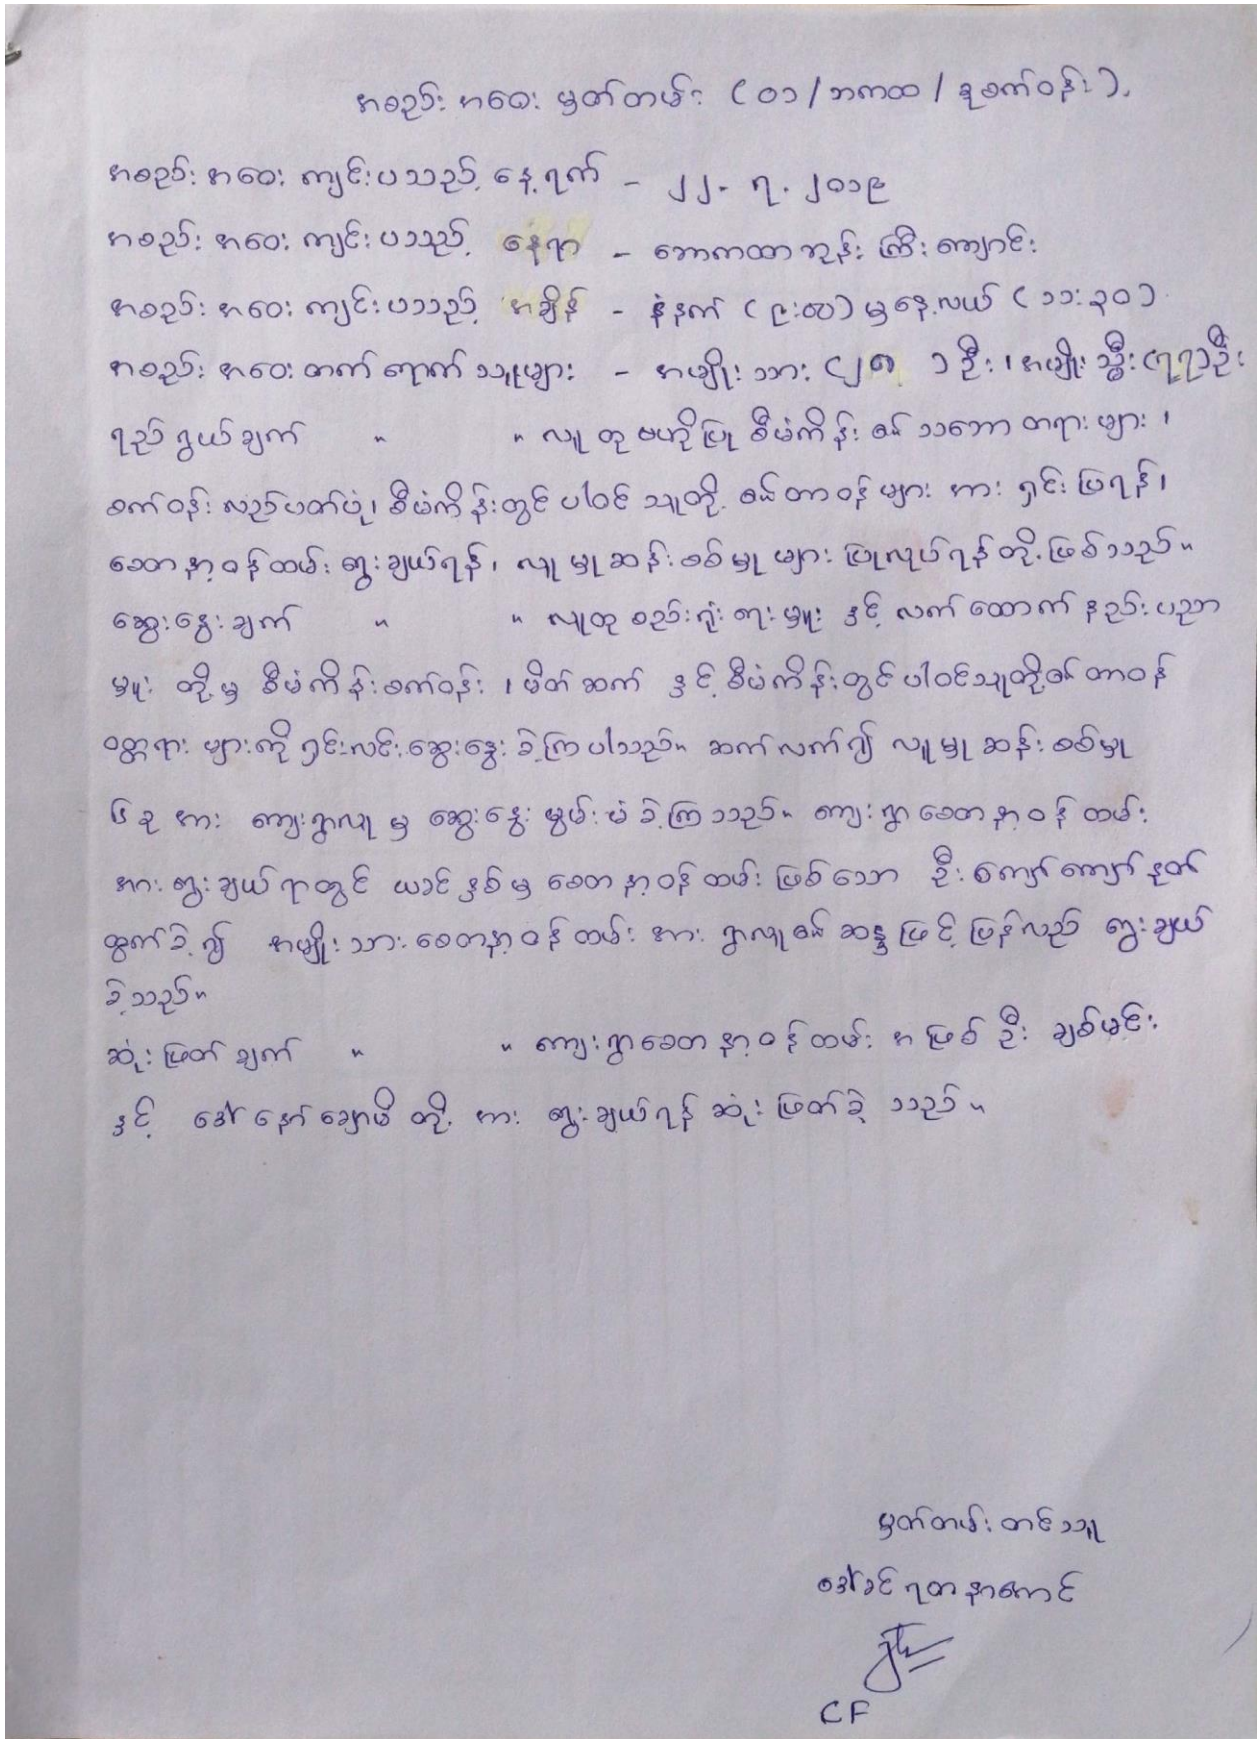 အစည်းအဝေးမှတ်တမ်း (၀၁/ဘကထ/ဒုစက်ဝန်း)
အစည်းအဝေးကျင်းပသည့်နေ့ရက် - ၂၂.၇.၂၀၁၉
အစည်းအဝေးကျင်းပသည့် နေရာ - ဘောကထာဘုန်းကြီးကျောင်း
အစည်းအဝေးကျင်းပသည့် အချိန် - နံနက် (၉:၀၀) မှနေ့လယ် (၁၁:၃၀)
အစည်းအဝေးတက်ရောက်သူများ - အမျိုးသား (၂၈) ဦး၊ အမျိုးသ္မီး (၇၇) ဦး
ရည်ရွယ်ချက် " " လူထုဗဟိုပြုစီမံကိန်း၏ သဘောတရားများ၊
စက်ဝန်းလည်ပတ်ပုံ၊ စီမံကိန်းတွင်ပါဝင်သူတို့၏တာဝန်များအား ရှင်းပြရန်၊
စေတနာ့ဝန်ထမ်းရွေးချယ်ရန်၊ လူမှုဆန်းစစ်မှုများပြုလုပ်ရန်တို့ဖြစ်သည်။
ဆွေးနွေးချက် " " လူထုစည်းရုံးရေးမှူး နှင့် လက်ထောက်နည်းပညာ
မှူး တို့မှ စီမံကိန်းစက်ဝန်း၊ မိတ်ဆက် နှင့် စီမံကိန်းတွင်ပါဝင်သူတို့၏တာဝန်
ဝတ္တရားများကို ရှင်းလင်းဆွေးနွေးခဲ့ကြပါသည်။ ဆက်လက်၍ လူမှုဆန်းစစ်မှု
၆ ခု အား ကျေးရွာလူမှ ဆွေးနွေးမွမ်းမံခဲ့ကြသည်။ ကျေးရွာစေတနာ့ဝန်ထမ်း
အားရွေးချယ်ရာတွင် ယခင်နှစ်မှစေတနာ့ဝန်ထမ်းဖြစ်သော ဦးကျော်ကျော်နုတ်
ထွက်ခဲ့၍ အမျိုးသားစေတနာ့ဝန်ထမ်းအား ရွာလူ၏ဆန္ဒဖြင့်ပြန်လည်ရွေးချယ်
ခဲ့သည်။
ဆုံးဖြတ်ချက် " " ကျေးရွာစေတနာ့ဝန်ထမ်းအဖြစ် ဦးချစ်မင်း
နှင့် ဒေါ်နော်ချောဖီတို့အား ရွေးချယ်ရန်ဆုံးဖြတ်ခဲ့သည်။
မှတ်တမ်းတင်သူ
ဒေါ်ခင်ရတနာအောင်
CF